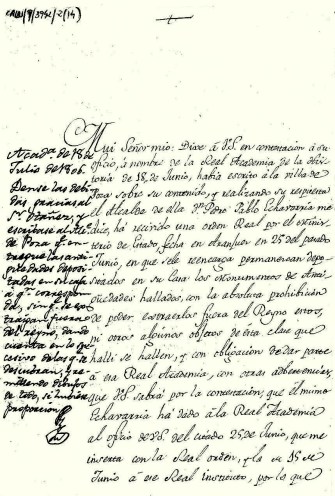 CABU/9/3941/2(14)
†
Acordn. de 18 de
Julio de 1806.
Dense las debi-
das gracias al
Sr. Ibáñez, y
escribase al Alc.
de Poza qe. en-
tregue las anti-
güedades deposi-
tadas en su casa
á qn. correspon-
da, sin qe. se ex-
traigan fuera
del reyno, dando
cuenta en lo su-
cesivo de las qe. se
descubran, y re-
mitiendo dibujos
de todo, si hubiere
proporcion.
Mui Señor mio: Dixe á VS. en contextacion á su
oficio, á nombre de la Real Academia de la His-
toria de 18 de Junio, havia escrito á la villa de
Poza sobre su contenido, y realizando su respuesta
el Alcalde de ella Dn. Pedro Pablo Echavarria me
dice, há recivido una orden Real por el Minis-
terio de Estado, fecha en Aranjuez en 25 del pasado
Junio, en que se le encarga permanezcan depo-
sitados en su casa los monumentos de Anti-
güedades hallados, con la absoluta prohibicion
de poder extraerlos fuera del Reyno estos,
ni otros algunos objetos de esta clase que
halli se hallen, y con obligacion de dar parte
á esa Real Academia, con otras advertencias,
que VS. sabrá por la contextacion, que el mismo
Echavarria há dado á la Real Academia
al oficio de VS. del citado 25 de Junio, que me
inserta con la Real orden, y la su 15 de
Junio á ese Real instituto, por lo que